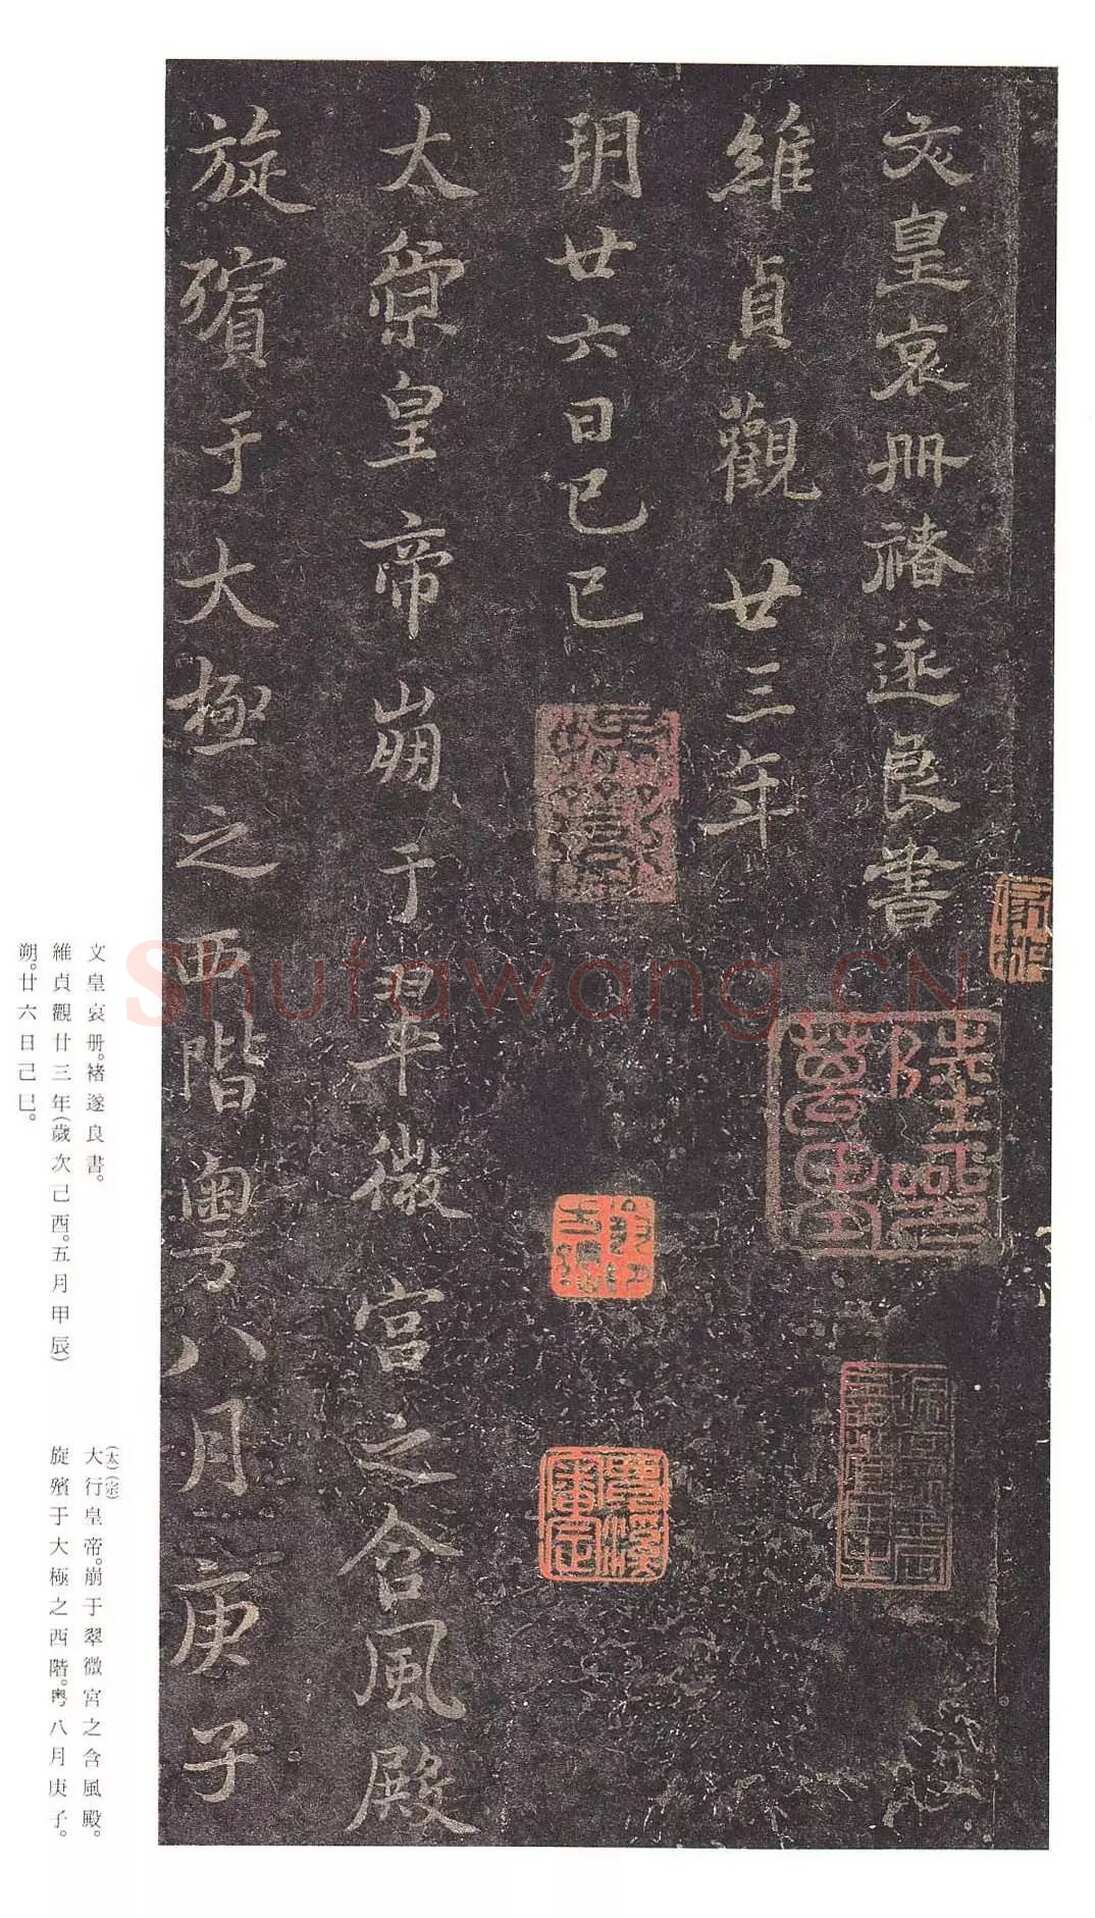 文皇哀册褚遂良書
維貞觀廿三年
朔廿六日己巳
太宗皇帝崩于翠微宮之含風殿
旋殯于大極之西階粤八月庚子
文皇哀册。褚遂良書。
維貞觀廿三年(歲次己酉。五月甲辰)
朔。廿六日己巳。
(太)(宗)
大行皇帝。崩于翠微宮之含風殿。
旋殯于大極之西階。粤八月庚子。
Shufawang.CN